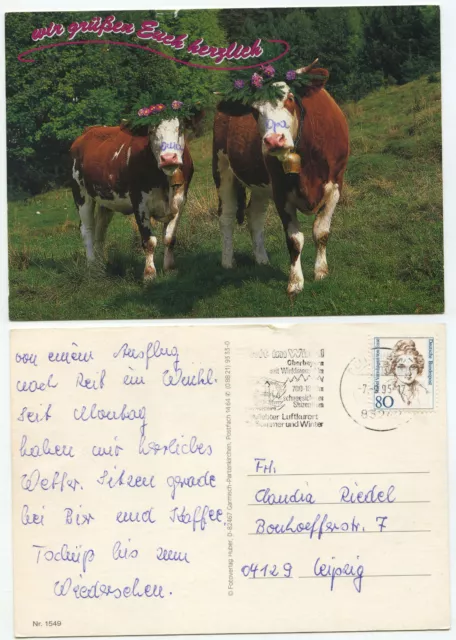 wir grüßen Euch herzlich
Opa
von einem Ausflug
nach Reit im Winkl.
Seit Montag
haben wir herrliches
Wetter. Sitzen gerade
bei Bier und Kaffee.
Tschüß bis zum
Wiedersehen.
Nr. 1549
© Fotoverlag Huber, D-82467 Garmisch-Partenkirchen, Postfach 1464
Reit im Winkl
Oberbayern
mit Winklmoosalm
700-
schneesicher
Luftkurort
Sommer und Winter
Deutsche Bundespost
80
Frl.
Claudia Riedel
Bonhoefferstr. 7
04129 Leipzig